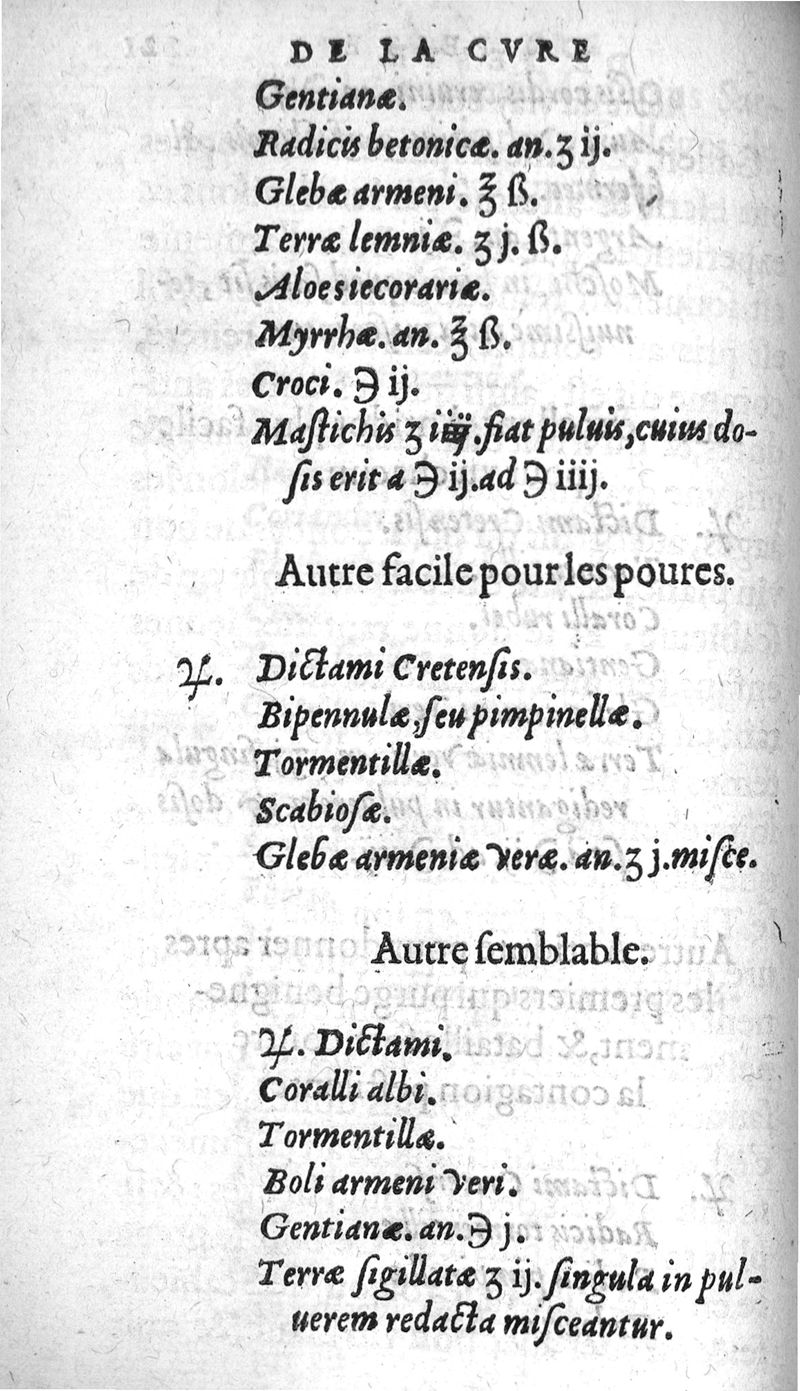 DE LA CVRE
Gentianæ.
Radicis betonicæ. an. ʒ ij.
Glebæ armeni. ℥ ß.
Terræ lemniæ. ʒ j. ß.
Aloes iecorariæ.
Myrrhæ. an. ℥ ß.
Croci. ℈ ij.
Maſtichis ʒ iiij. fiat puluis, cuius do-
ſis erit a ℈ ij. ad ℈ iiij.
Autre facile pour les poures.
♃. Dictami Cretenſis.
Bipennulæ, ſeu pimpinellæ.
Tormentillæ.
Scabioſæ.
Glebæ armeniæ veræ. an. ʒ j. miſce.
Autre ſemblable.
♃. Dictami.
Coralli albi.
Tormentillæ.
Boli armeni veri.
Gentianæ. an. ℈ j.
Terræ ſigillatæ ʒ ij. ſingula in pul-
uerem redacta miſceantur.